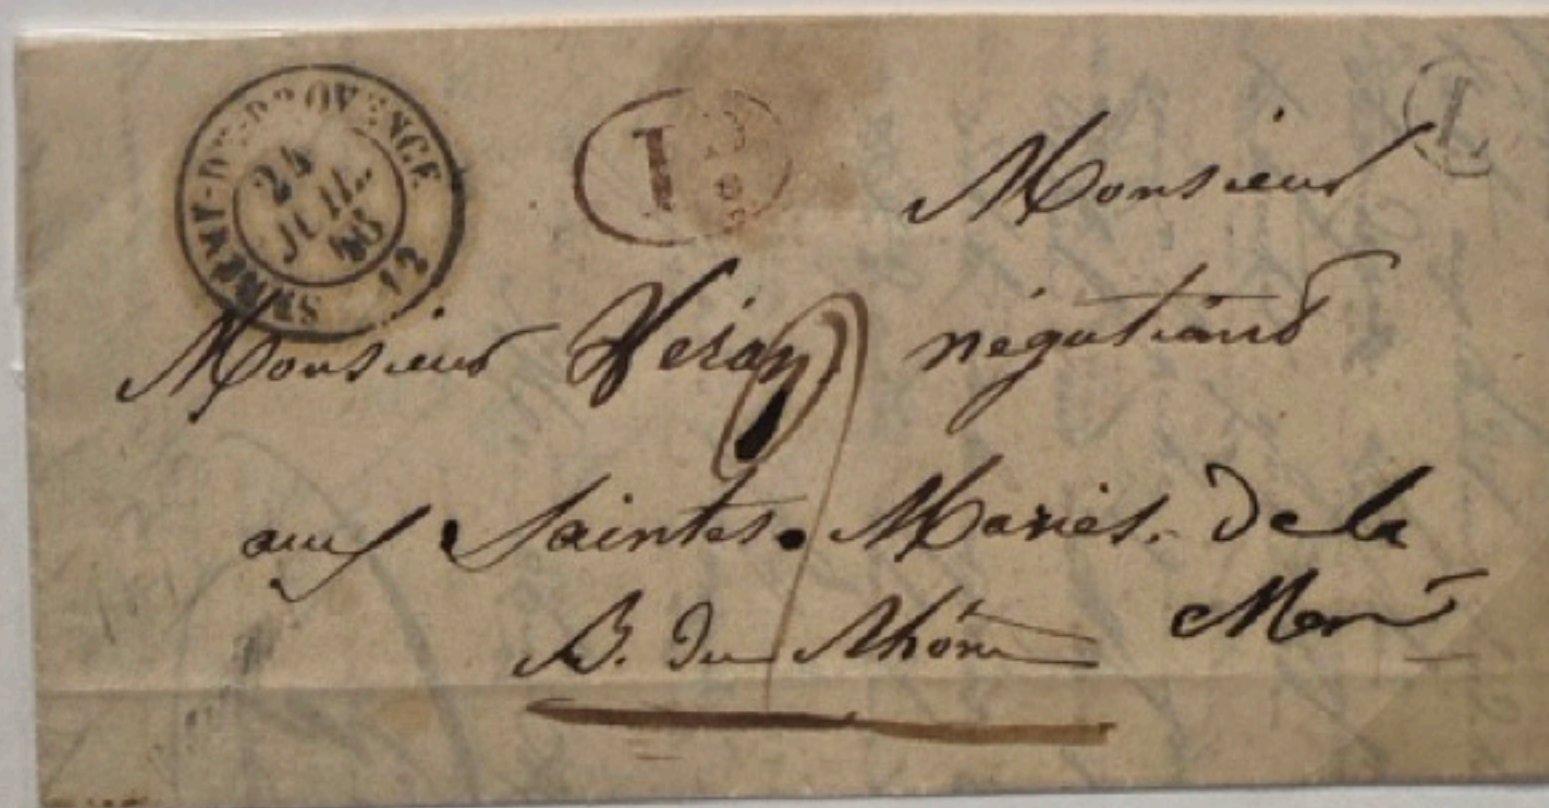 ST-REMY-DE-PROVENCE
24
JUIL.
46
12
1 D
L
Monsieur
Monsieur Véran négotiand
aux Saintes. Maries. De la
Mer
B. du Rhône